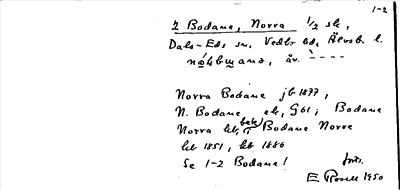 1-2
2 Bodane, Norra 1/2 sk,
Dals-Eds sn, Vedbo hd, Älvsb. l.
Norra Bodane jb 1877,
N. Bodane ek, G61; Bodane
Norra hfl, (bebl) Bodane Norre
hfl 1851, hfl 1886
Se 1-2 Bodane!
forts.
E Rosell 1950